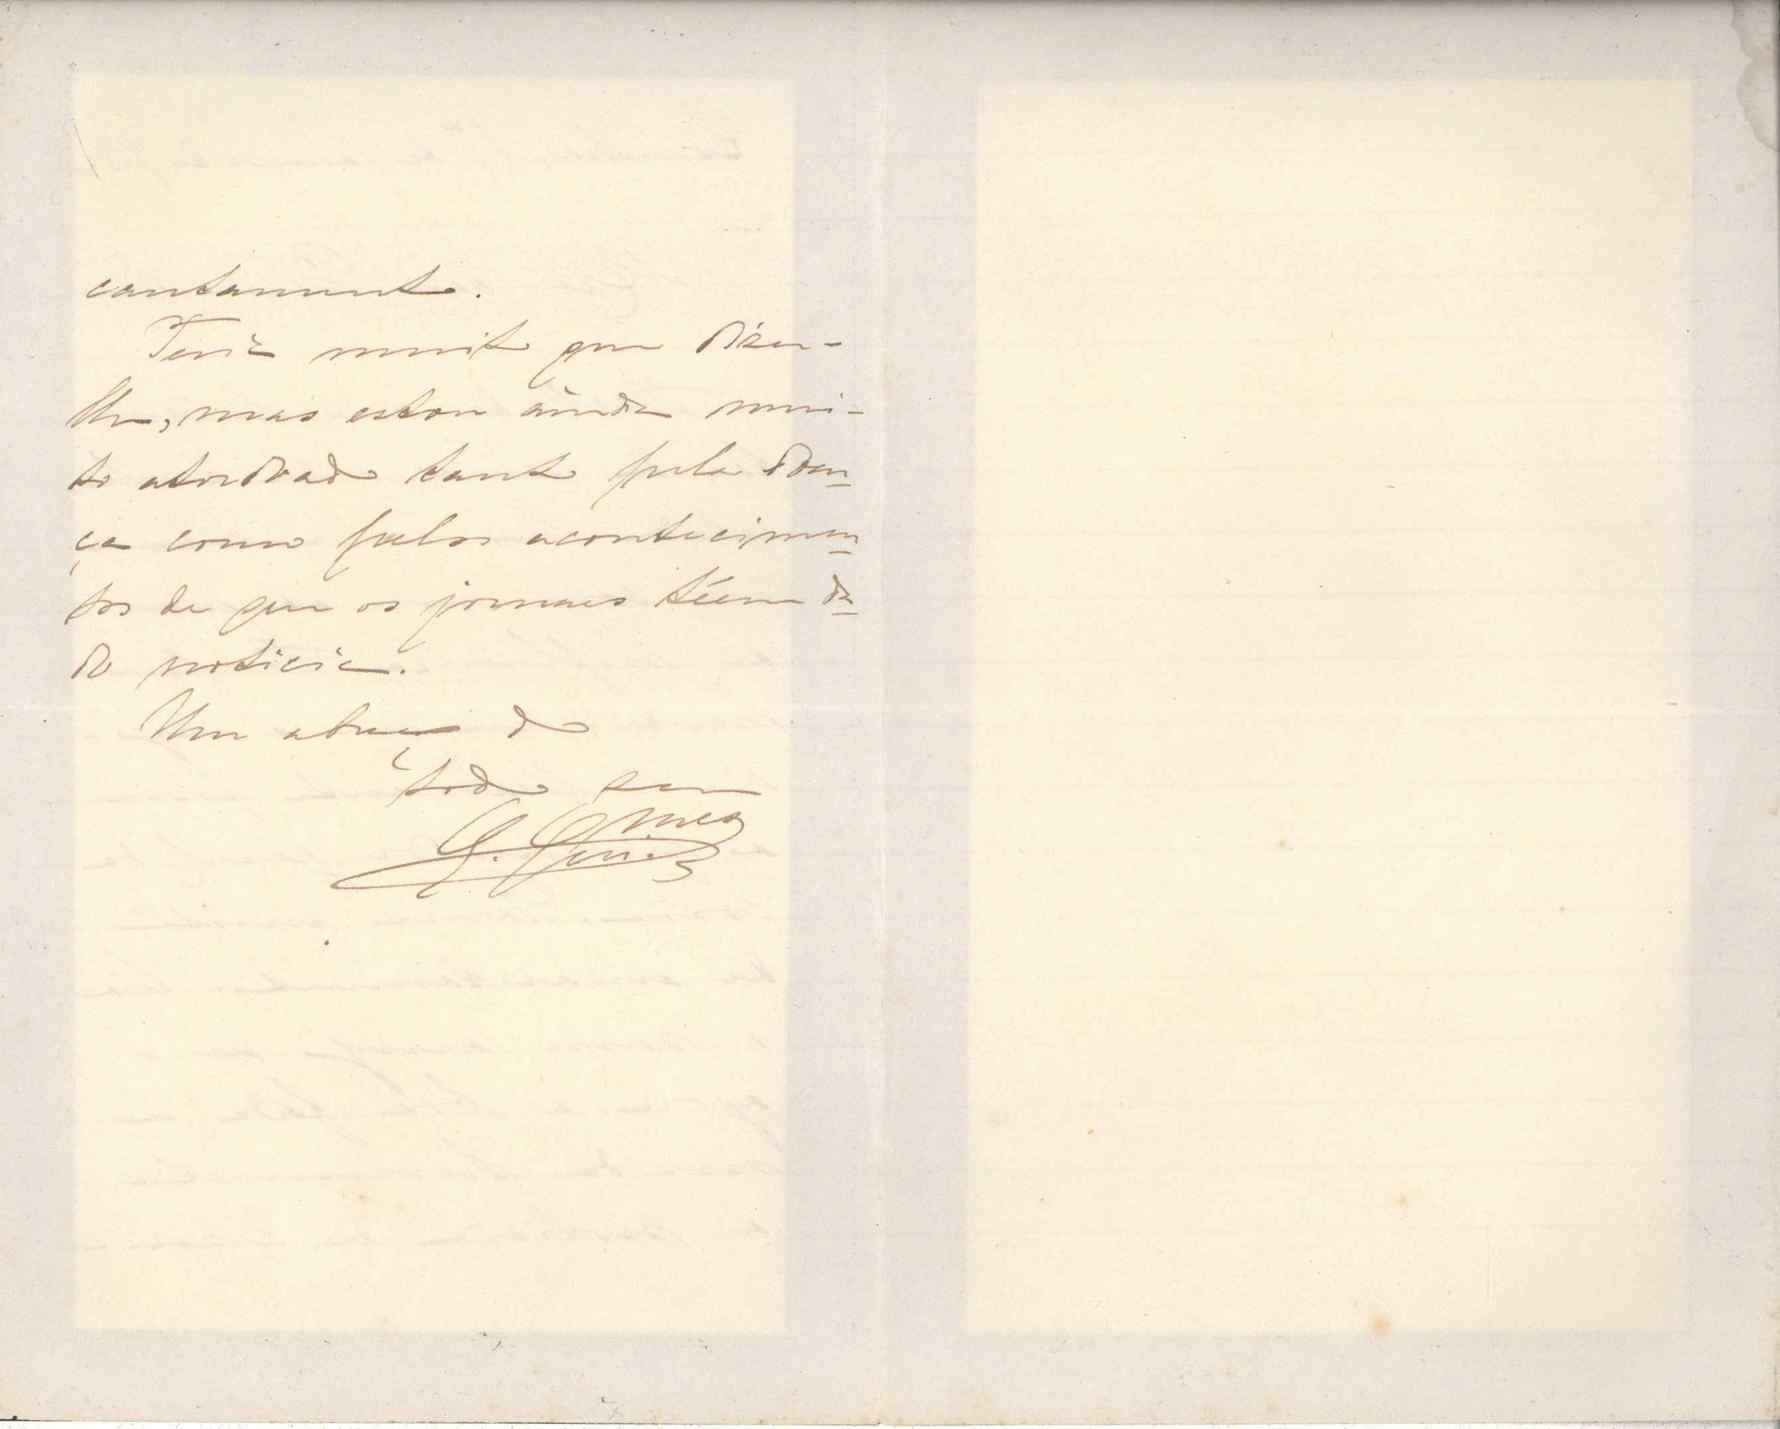 cantamente.
Teria muito que dizer-
lhe, mas estou ainda mui-
to atordoado tanto pela doen-
ça como pelos acontecimen-
tos de que os jornaes téem da-
do noticia.
Um abraço do
todo seu